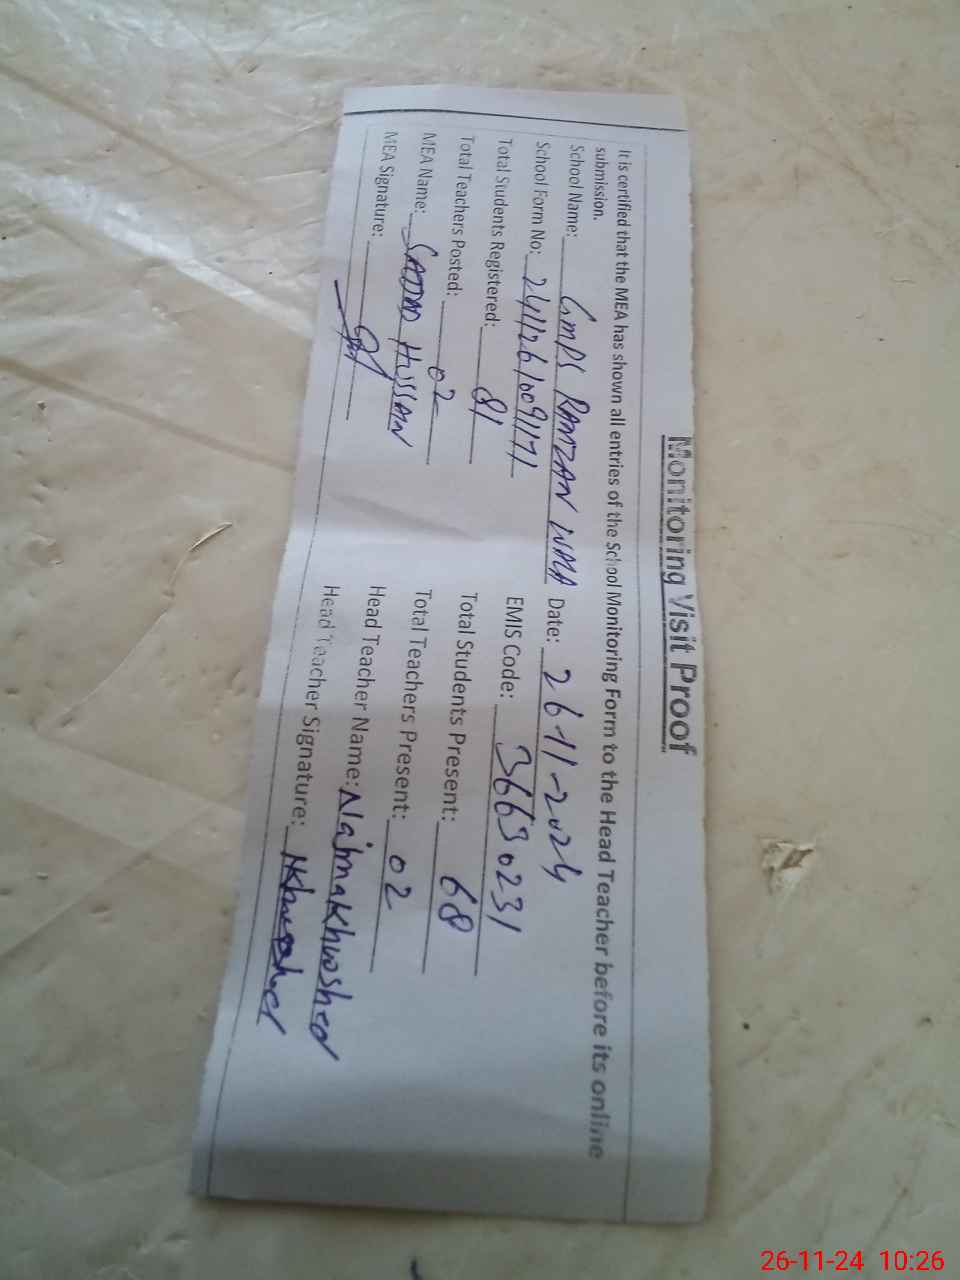 Monitoring Visit Proof
It is certified that the MEA has shown all entries of the School Monitoring Form to the Head Teacher before its online
submission.
School Name: GMPS RAMZAN WALA Date: 26-11-2024
School Form No: 24112610091171 EMIS Code: 36630231
Total Students Registered: 81 Total Students Present: 68
Total Teachers Posted: 02 Total Teachers Present: 02
MEA Name: SADDAM HUSSAIN Head Teacher Name: Najmakhurshed
MEA Signature: Head Teacher Signature:
26-11-24 10:26